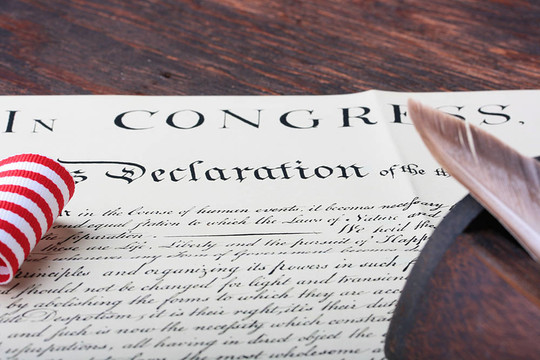 In CONGRESS,
Declaration of the
in the Course of human events, it becomes necessary
equal station to which the Laws of Nature and
separation. We hold
Life, Liberty and the pursuit of Happ
Form of Government
principles and organizing its powers in such f
should not be changed for light and transien
abolishing the forms to which they are
Despotism, it is their right, it is their dut
and such is now the necessity which constra
all having in direct object the
the most wholesome